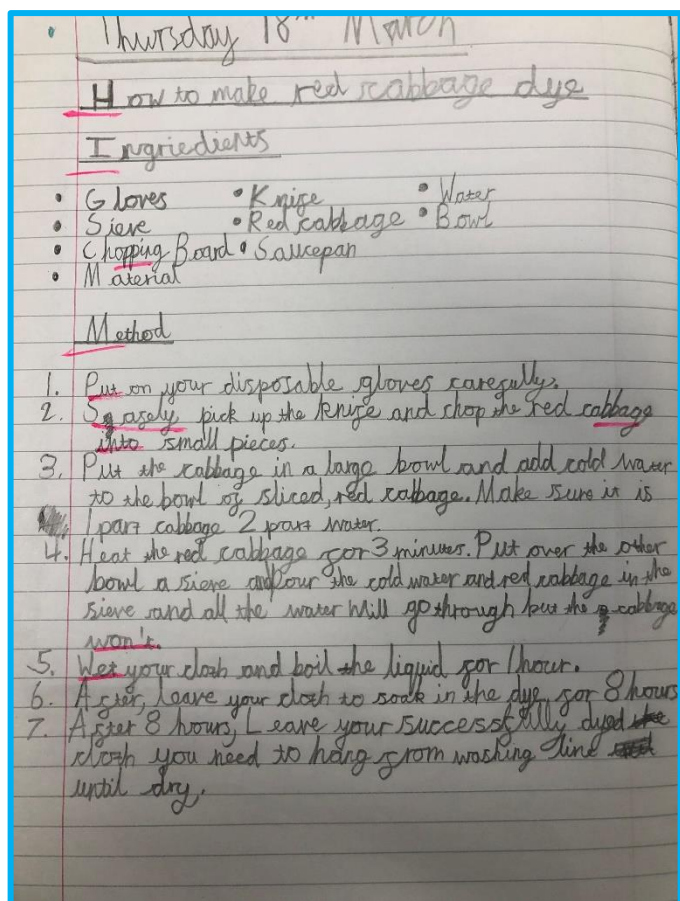 Thursday 18th March
How to make red cabbage dye
Ingriedients
• Gloves • Knife • Water
• Sieve • Red cabbage • Bowl
• Chopping Board • Saucepan
• Material
Method
1. Put on your disposable gloves carefully.
2. Safely pick up the knife and chop the red cabbage
into small pieces.
3. Put the cabbage in a large bowl and add cold water
to the bowl of sliced, red cabbage. Make sure it is
1 part cabbage 2 part water.
4. Heat the red cabbage for 3 minutes. Put over the other
bowl a sieve and pour the cold water and red cabbage in the
sieve and all the water will go through but the cabbage
won't.
5. Wet your cloth and boil the liquid for 1 hour.
6. After, Leave your cloth to soak in the dye, for 8 hours
7. After 8 hours, Leave your successfully dyed
cloth you need to hang from washing line
until dry.